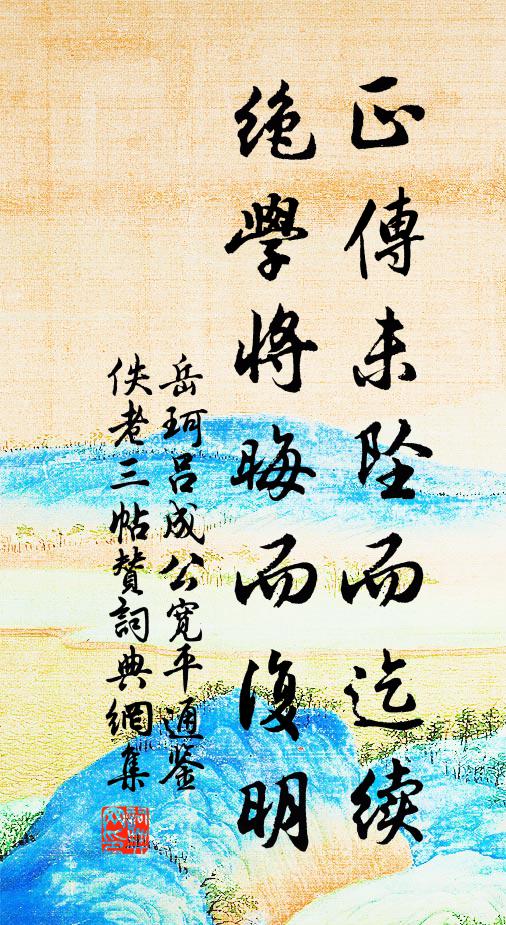 正傳未墜而迄續
絶學將晦而復明
岳珂呂成公寬平通鉴
佚老三帖贊詞典網集